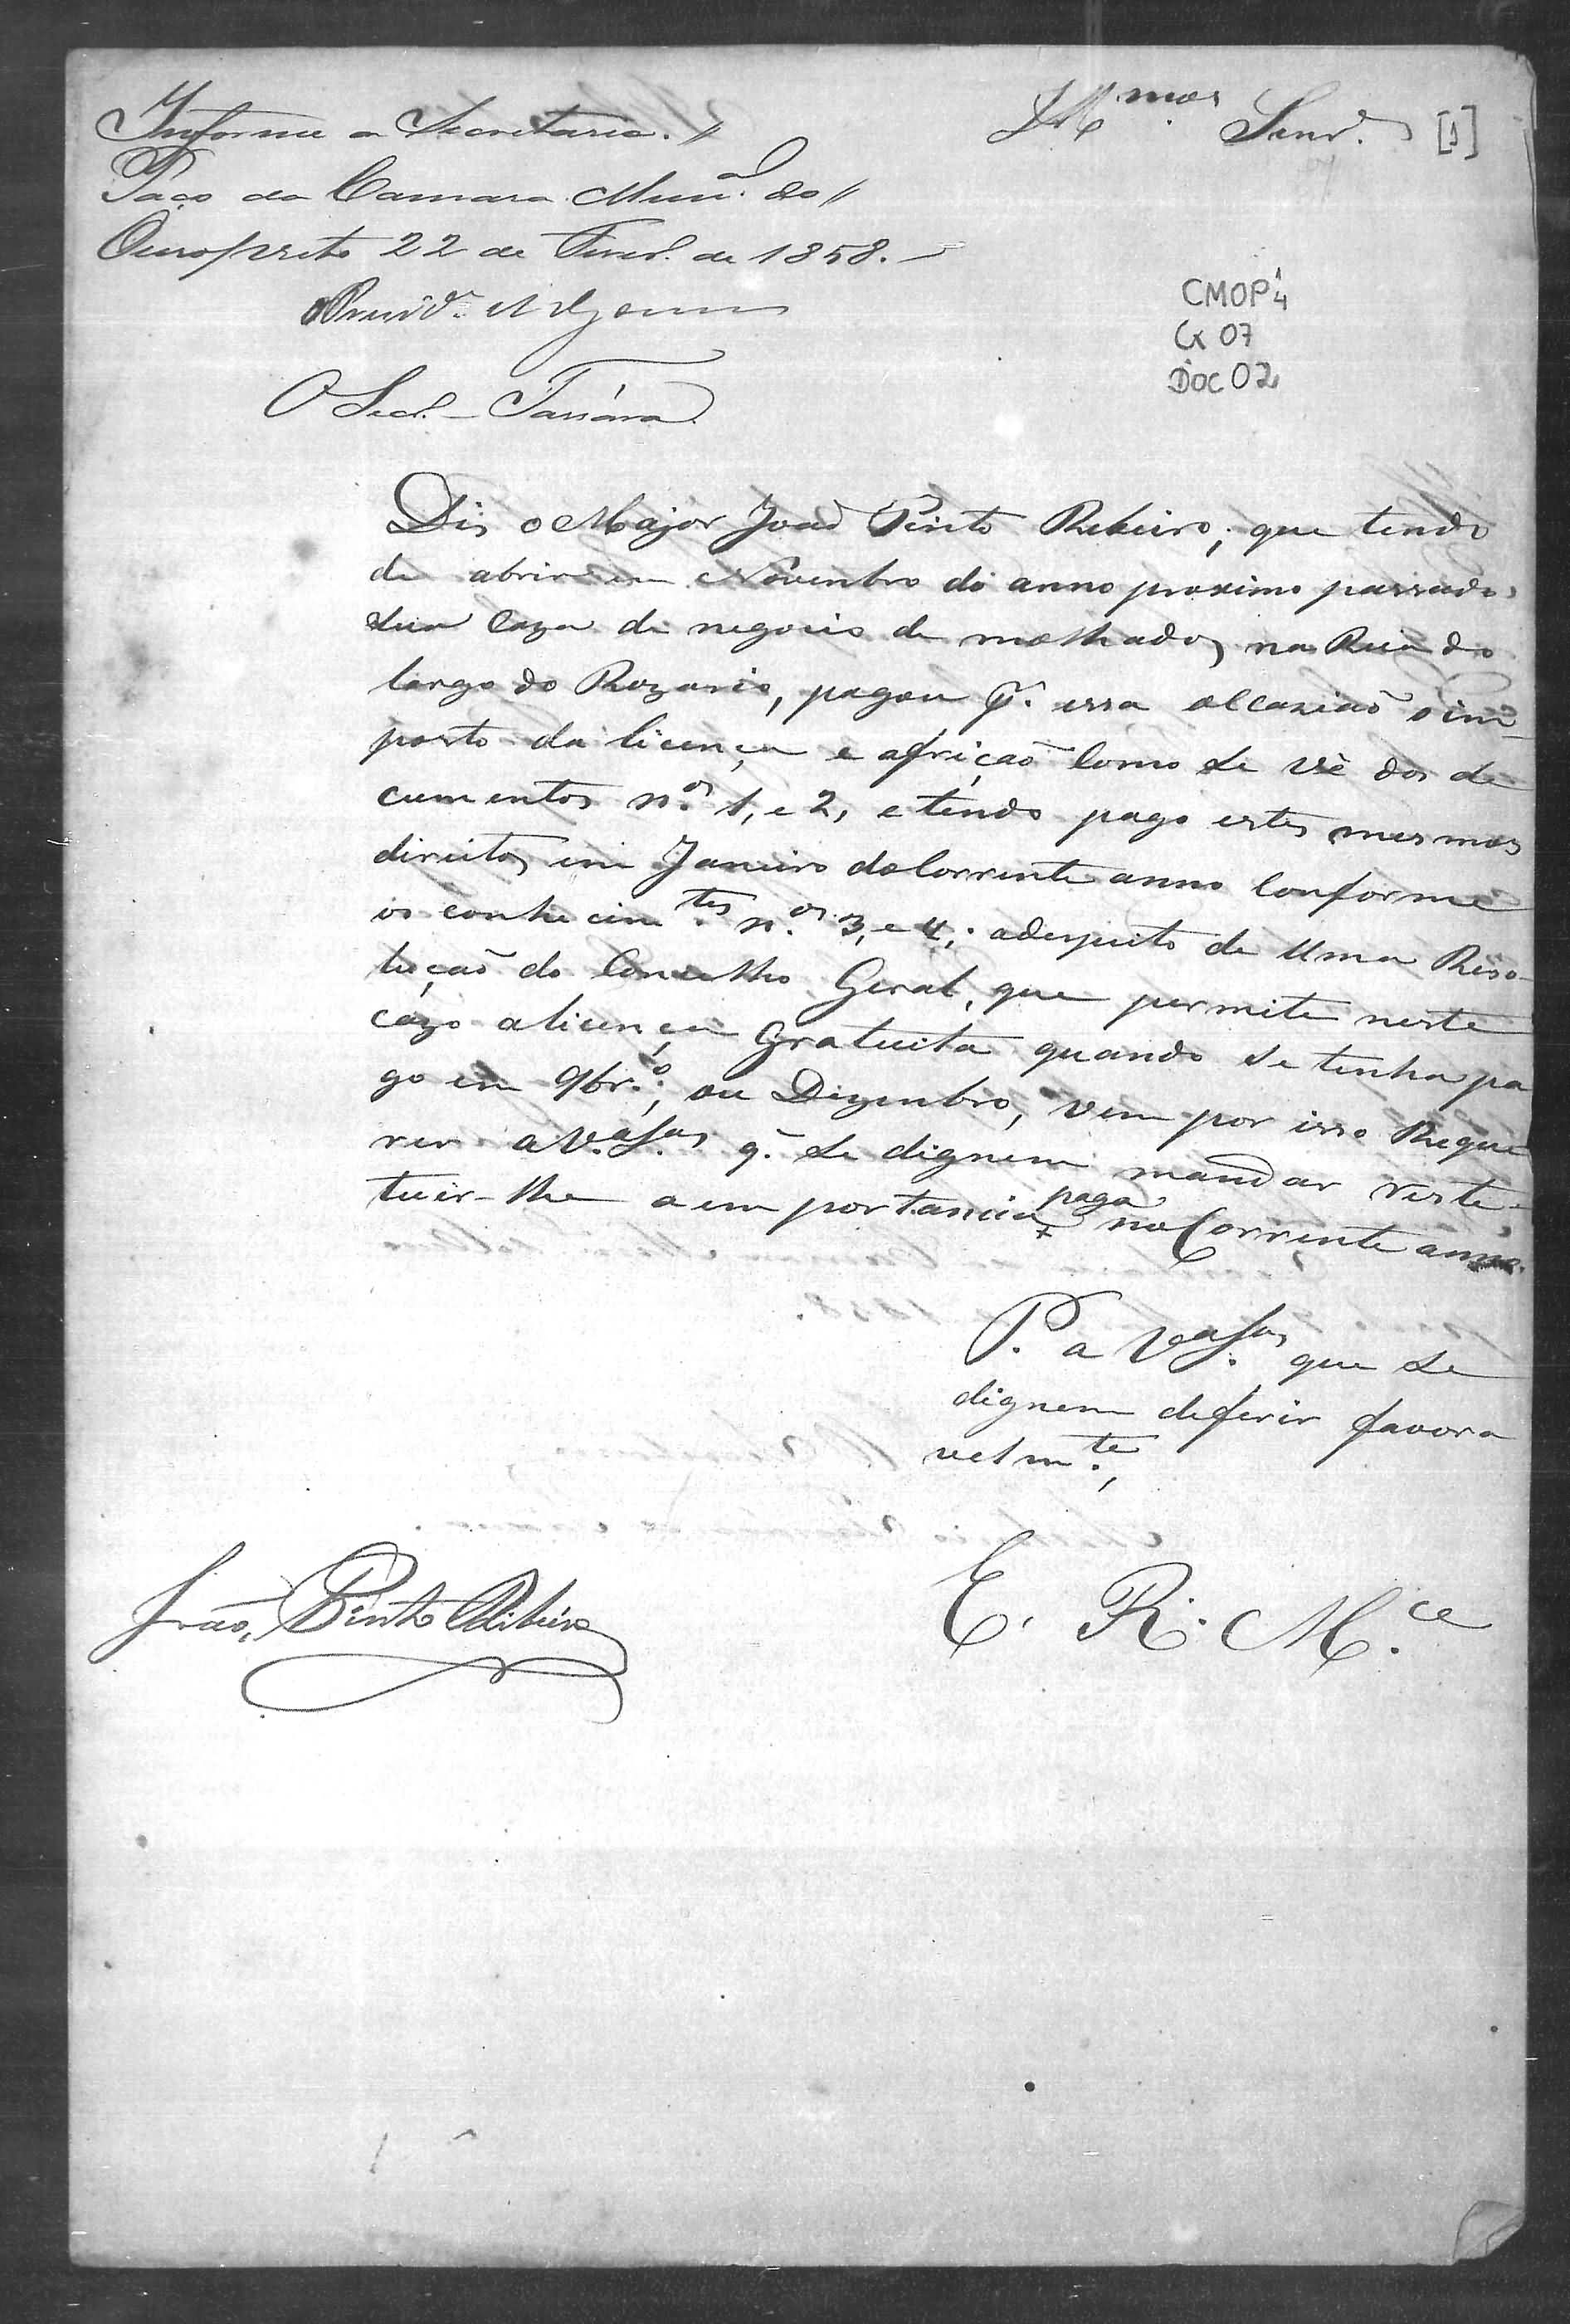 Informe a Secretaria. //
Paço da Camara Mun.al do //
Ouro preto 22 de Fever.o de 1858. –
O Secr.o – Tassára
Ill.mos Senr.es [1]
CMOP 1/4
Cx 07
Doc 02
Dis o Major Joaõ Pinto Ribeiro, que tendo
de abrir em Novembro do anno proximo passado
sua Caza de negocio de molhados na Rua do
largo do Rozario, pagou p.r essa occaziaõ o im-
posto da licença e afriçaõ Como se vê dos do
cumentos n.os 1, e 2, e tendo pago estes mesmos
direitos em Janeiro do Corrente anno Conforme
os conhecim.tes n.os 3, e 4,: adespeito de Uma Reso-
luçaõ do Concelho Geral, que permite neste
cazo alicença Gratuita quando se tenha pa
go em 9br.o, ou Dezembro, vem por isso Reque
rer a V.as S.as q.e se dignem mandar reste-
tuir-lhe a emportancia paga no Corrente anno.
P. a V.as S.as que se
dignem deferir favora
velm.te,
E. R. M.ce
Joaõ Pinto Ribeiro